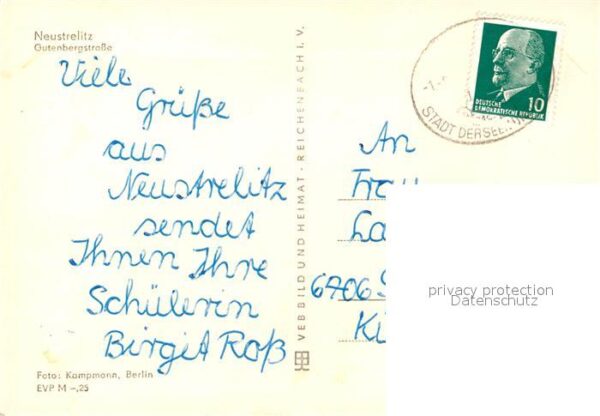 Neustrelitz
Gutenbergstraße
Viele
Grüße
aus
Neustrelitz
sendet
Ihnen Ihre
Schülerin
Birgit Roß
Foto: Kampmann, Berlin
EVP M -,25
VEB BILD UND HEIMAT · REICHENBACH I. V.
DEUTSCHE
DEMOKRATISCHE REPUBLIK
10
STADT DER SEE
An
Frau
6706
privacy protection
Datenschutz